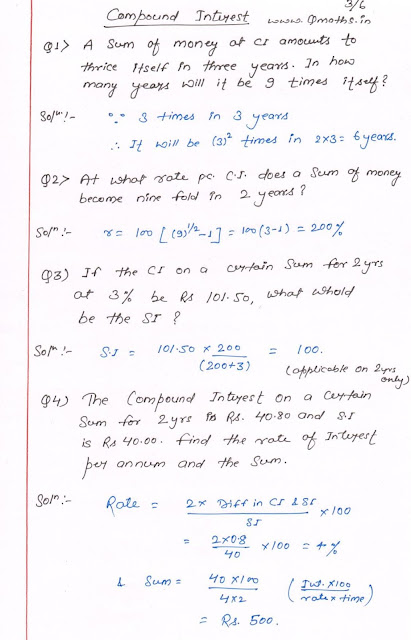 3/6
Compound Interest www.Qmaths.in
Q1> A Sum of money at CI amounts to
thrice itself in three years. In how
many years will it be 9 times itself?
Solⁿ:- ∵ 3 times in 3 years
∴ It will be (3)² times in 2×3 = 6 years.
Q2> At what rate pc. C.I. does a Sum of money
become nine fold in 2 years?
Solⁿ:- r = 100 [(9)^1/2 -1] = 100 (3-1) = 200%
Q3) If the CI on a certain Sum for 2yrs
at 3% be Rs 101.50, what whold
be the SI ?
Solⁿ:- S.I = 101.50 × 200 / (200+3) = 100.
(applicable on 2yrs only)
Q4) The Compound Interest on a certain
Sum for 2yrs is Rs. 40.80 and S.I
is Rs 40.00. find the rate of Interest
per annum and the Sum.
Solⁿ:- Rate = 2 × Diff in CI & SI / SI × 100
= 2×0.8 / 40 × 100 = 4%
& Sum = 40 × 100 / 4×2 (Int. × 100 / rate × time)
= Rs. 500.